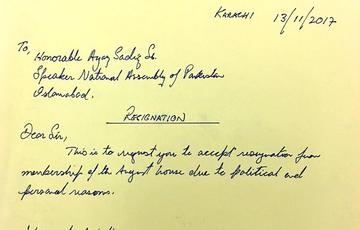 KARACHI 13/11/2017
To,
Honorable Ayaz Sadiq Sb.
Speaker National Assembly of Pakistan
Islamabad.
RESIGNATION
Dear Sir,
This is to request you to accept resignation from
membership of the August house due to political and
personal reasons.